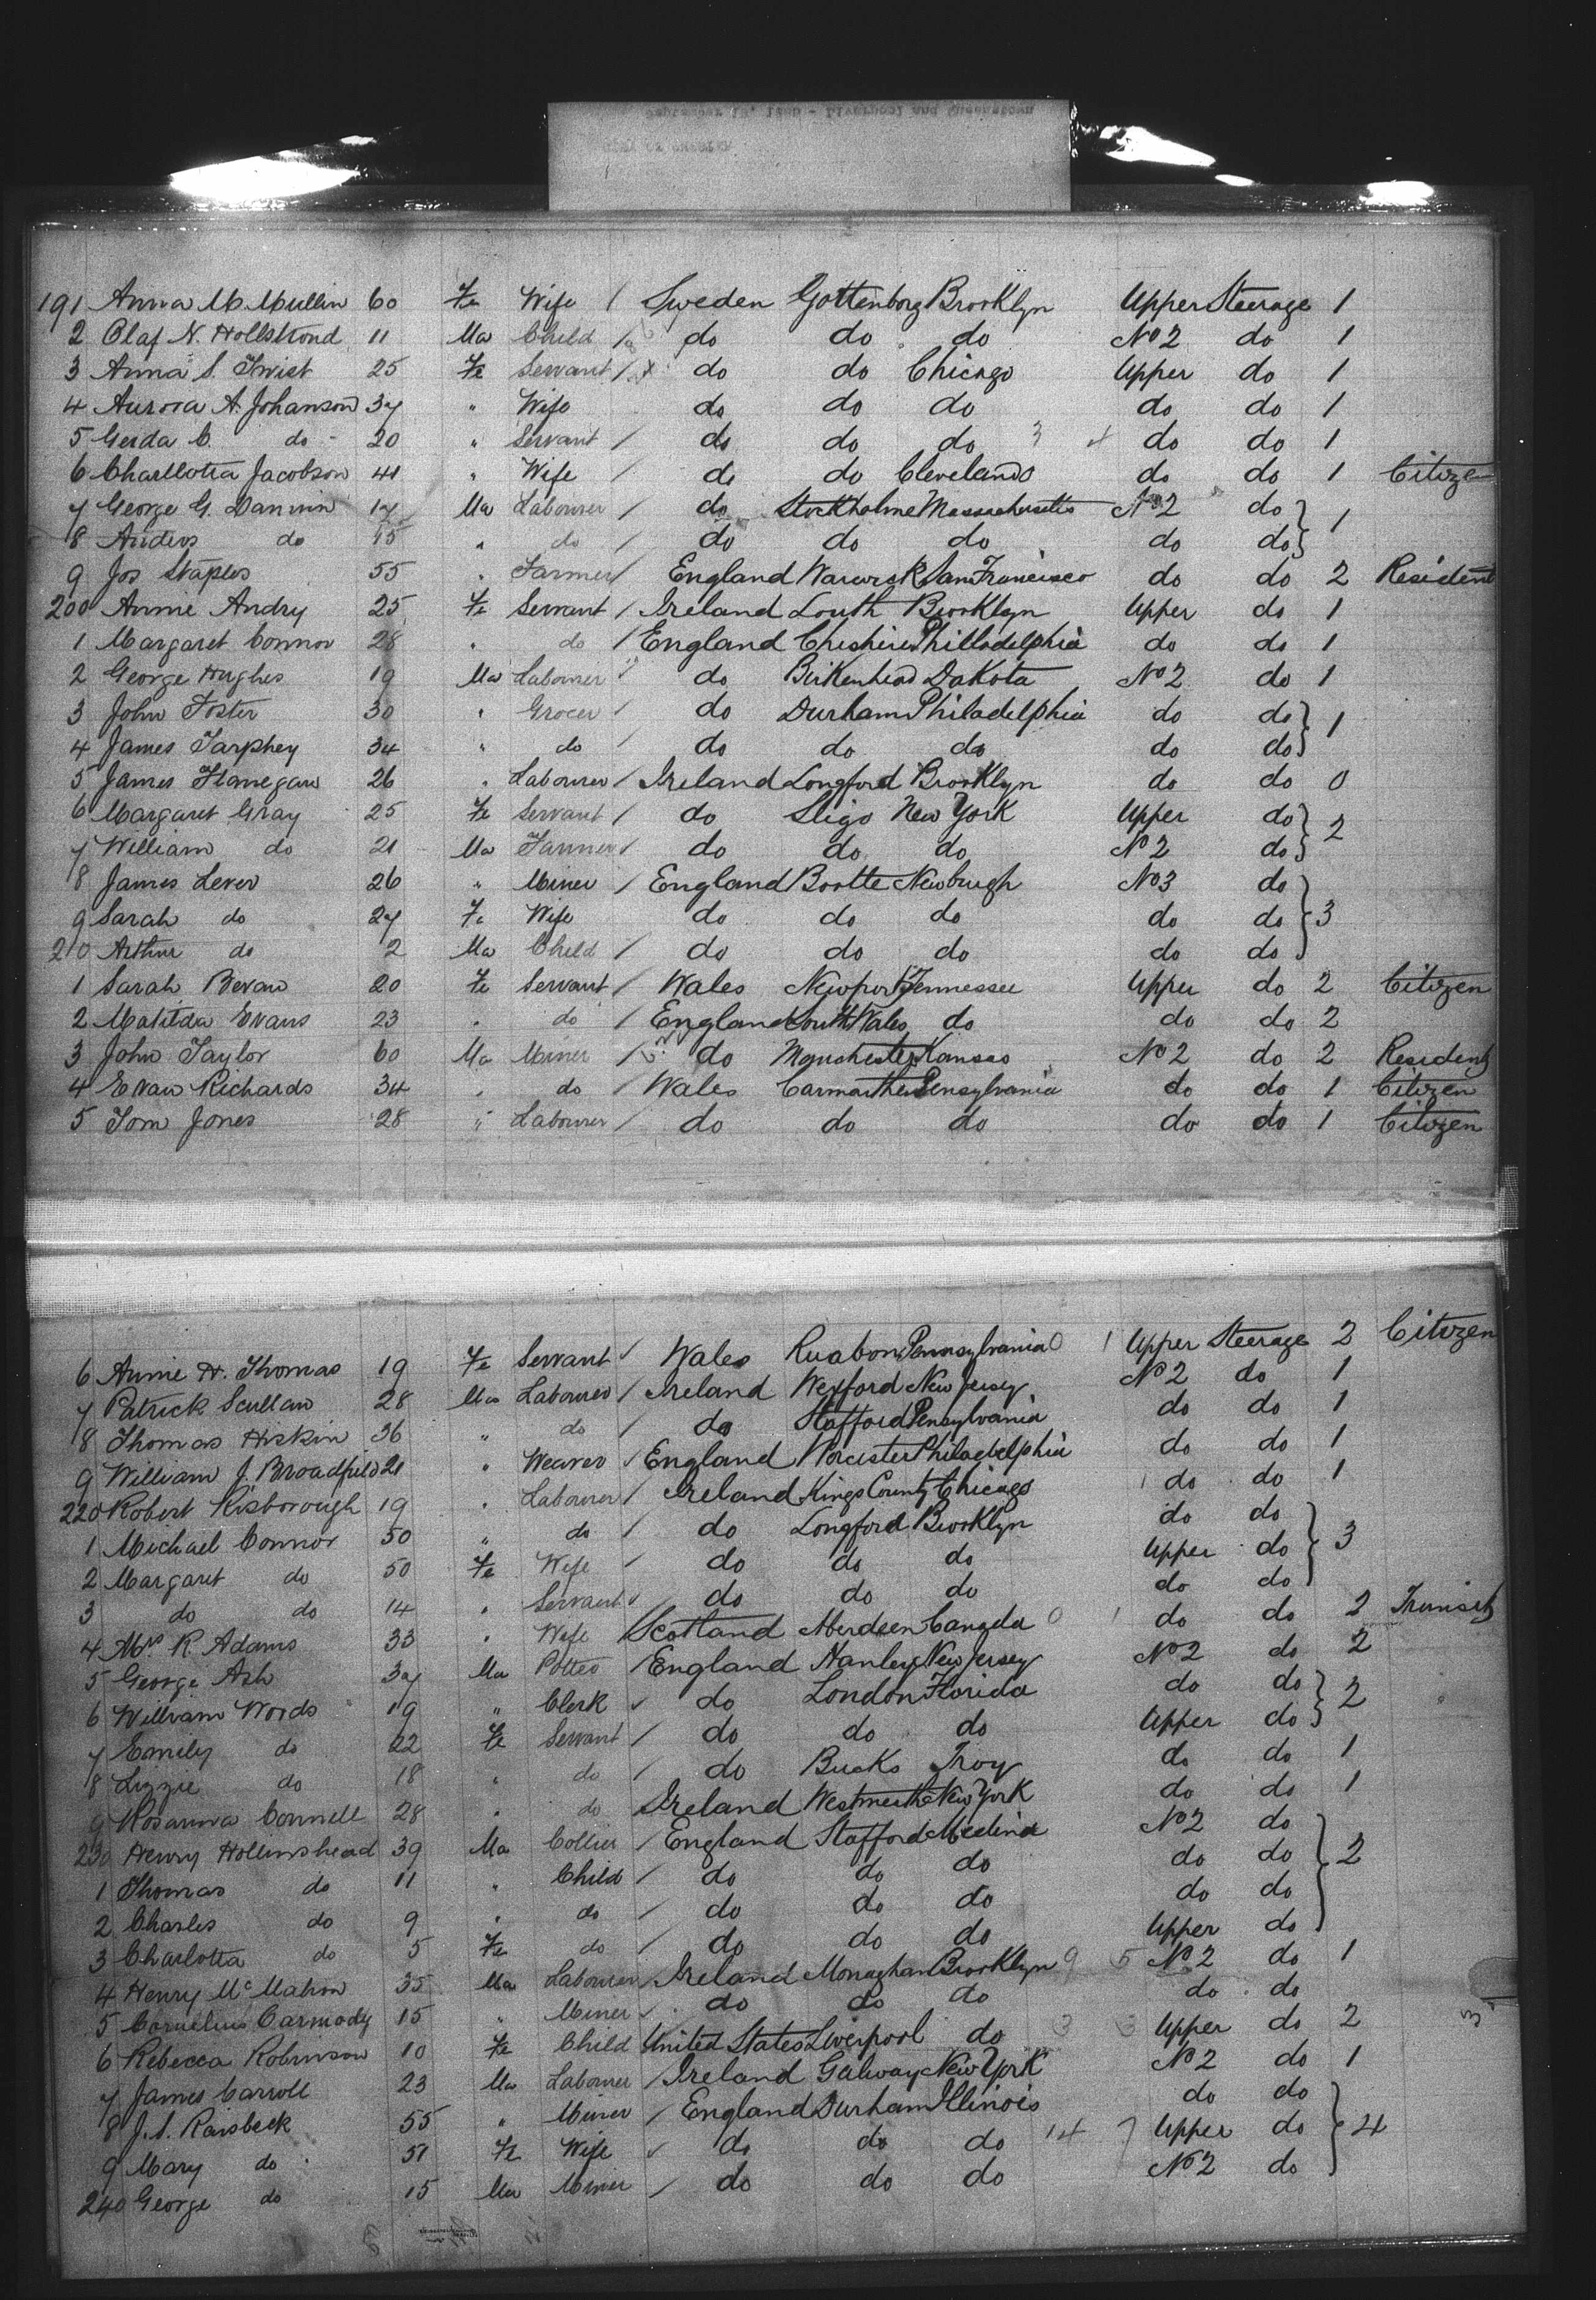 191 Anna M. Mullin 60 Fe Wife / Sweden Gottenborg Brooklyn Upper Steerage 1
2 Olaf N. Hollstrond 11 Ma Child / do do do No 2 do 1
3 Anna S. Twist 25 Fe Servant / do do Chicago Upper do 1
4 Aurora A. Johanson 37 " Wife do do do do do 1
5 Gerda C. do 20 " Servant / do do do 3 4 do do 1
6 Charllotta Jacobson 41 " Wife / do do Cleveland do do 1 Citizen
7 George G. 17 Ma Labourer / do Stockholme Massachusetts No 2 do } 1
8 Anders do 15 " do / do do do do do }
9 Jos Staples 55 " Farmer / England Warwick San Francisco do do 2 Resident
200 Annie Andry 25 Fe Servant / Ireland Louth Brooklyn Upper do 1
1 Margaret Connor 28 " do / England Cheshire Philladelphia do do 1
2 George Hughes 19 Ma Labourer / do Birkenhead Dakota No 2 do 1
3 John Foster 30 " Grocer / do Durham Philadelphia do do } 1
4 James Tarphey 34 " do / do do do do do }
5 James Flanegan 26 " Labourer / Ireland Longford Brooklyn do do 0
6 Margaret Gray 25 Fe Servant / do Sligo New York Upper do } 2
7 William do 21 Ma Farmer / do do do No 2 do }
8 James Lever 26 " Miner / England Bootle Newburgh No 3 do }
9 Sarah do 27 Fe Wife do do do do do } 3
210 Arthur do 2 Ma Child / do do do do do }
1 Sarah Bevan 20 Fe Servant / Wales Newport Tennessee Upper do 2 Citizen
2 Matilda Evans 23 " do / England South Wales do do do 2
3 John Taylor 60 Ma Miner / do Manchester Kansas No 2 do 2 Resident
4 Evan Richards 34 " do / Wales Carmarthen Pensylvania do do 1 Citizen
5 Tom Jones 28 " Labourer / do do do do do 1 Citizen
6 Annie H. Thomas 19 Fe Servant / Wales Ruabon Pennsylvania 0 1 Upper Steerage 2 Citizen
7 Patrick Scullan 28 Ma Labourer / Ireland Wexford New Jersey No 2 do 1
8 Thomas Hiskin 36 " do / do Stafford Pensylvania do do 1
9 William J. Broadfield 21 " Weaver / England Worcister Philadelphia do do 1
220 Robert Risborough 19 " Labourer / Ireland Kings County Chicago do do 1
1 Michael Connor 50 " do / do Longford Brooklyn do do }
2 Margaret do 50 Fe Wife / do do do Upper do } 3
3 do do 14 " Servant / do do do do do }
4 Mrs R. Adams 33 " Wife Scotland Aberdeen Canada 0 1 do do 2 Transit
5 George Ash 37 Ma Potter / England Hanley New Jersey No 2 do 2
6 William Woods 19 " Clerk / do London Florida do do } 2
7 Emily do 22 Fe Servant / do do do Upper do }
8 Lizzie do 18 " do / do Bucks Troy do do 1
9 Rosanna Connell 28 " do Ireland Westmeath New York do do 1
230 Henry Hollinshead 39 Ma Collier / England Stafford Medina No 2 do }
1 Thomas do 11 " Child / do do do do do } 2
2 Charles do 9 " do / do do do do do }
3 Charlotta do 5 Fe do / do do do Upper do }
4 Henry McMahon 35 Ma Labourer / Ireland Monaghan Brooklyn 9 5 No 2 do 1
5 Cornelius Carmody 15 " Miner / do do do do do
6 Rebecca Robinson 10 Fe Child United States Liverpool do 3 3 Upper do 2
7 James Carroll 23 Ma Labourer / Ireland Galway New York No 2 do 1
8 J. S. Raisbeck 55 " Miner / England Durham Illinois do do }
9 Mary do 51 Fe Wife / do do do 14 7 Upper do } 4
240 George do 15 Ma Miner / do do do No 2 do }